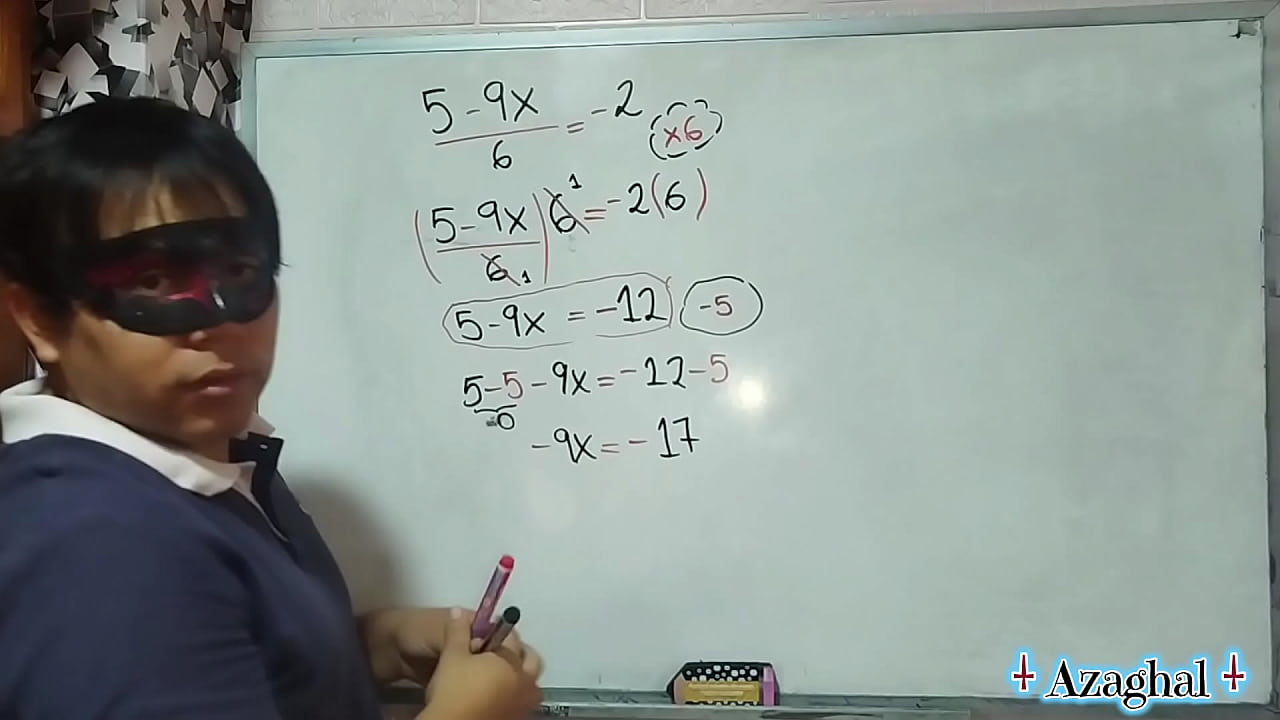 5 - 9x / 6 = -2 ×6
(5 - 9x / 6 1) 6 1 = -2(6)
5 - 9x = -12 -5
5 - 5 - 9x = -12 - 5
0
-9x = -17
Azaghal